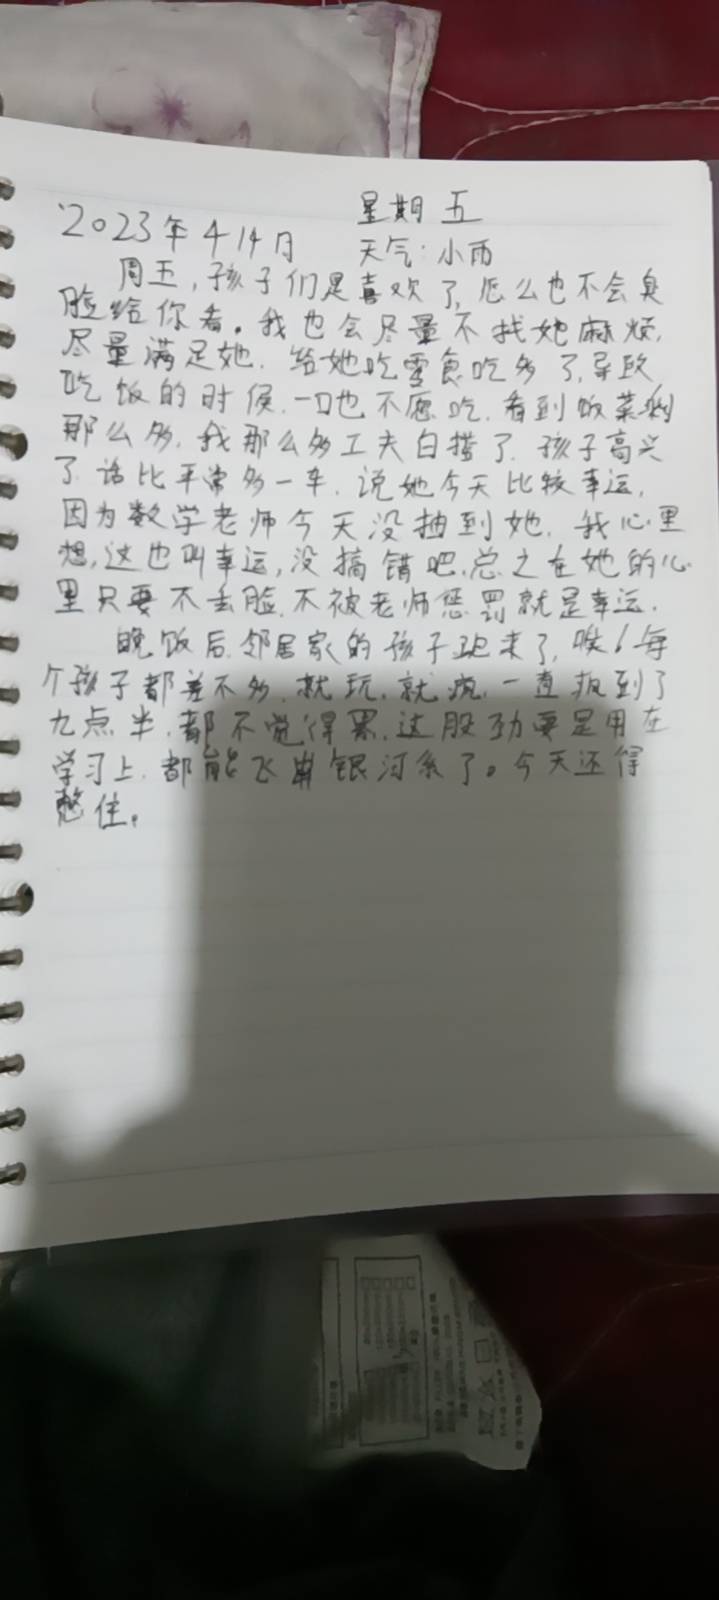 星期五
2023年414月
天气:小雨
周五,孩子们是喜欢了,怎么也不会臭
脸给你看。我也会尽量不找她麻烦,
尽量满足她.给她吃零食吃多了,导致
吃饭的时候.一口也不愿吃.看到饭菜剩
那么多.我那么多工夫白搭了.孩子高兴
了.话比平常多一车.说她今天比较幸运,
因为数学老师今天没抽到她.我心里
想,这也叫幸运,没搞错吧.总之在她的心
里只要不丢脸.不被老师惩罚就是幸运.
晚饭后.邻居家的孩子跑来了,唉!每
个孩子都差不多.就玩.就疯.一直疯到了
九点半.都不觉得累.这股劲要是用在
学习上.都能飞出银河系了。今天还得
憋住。